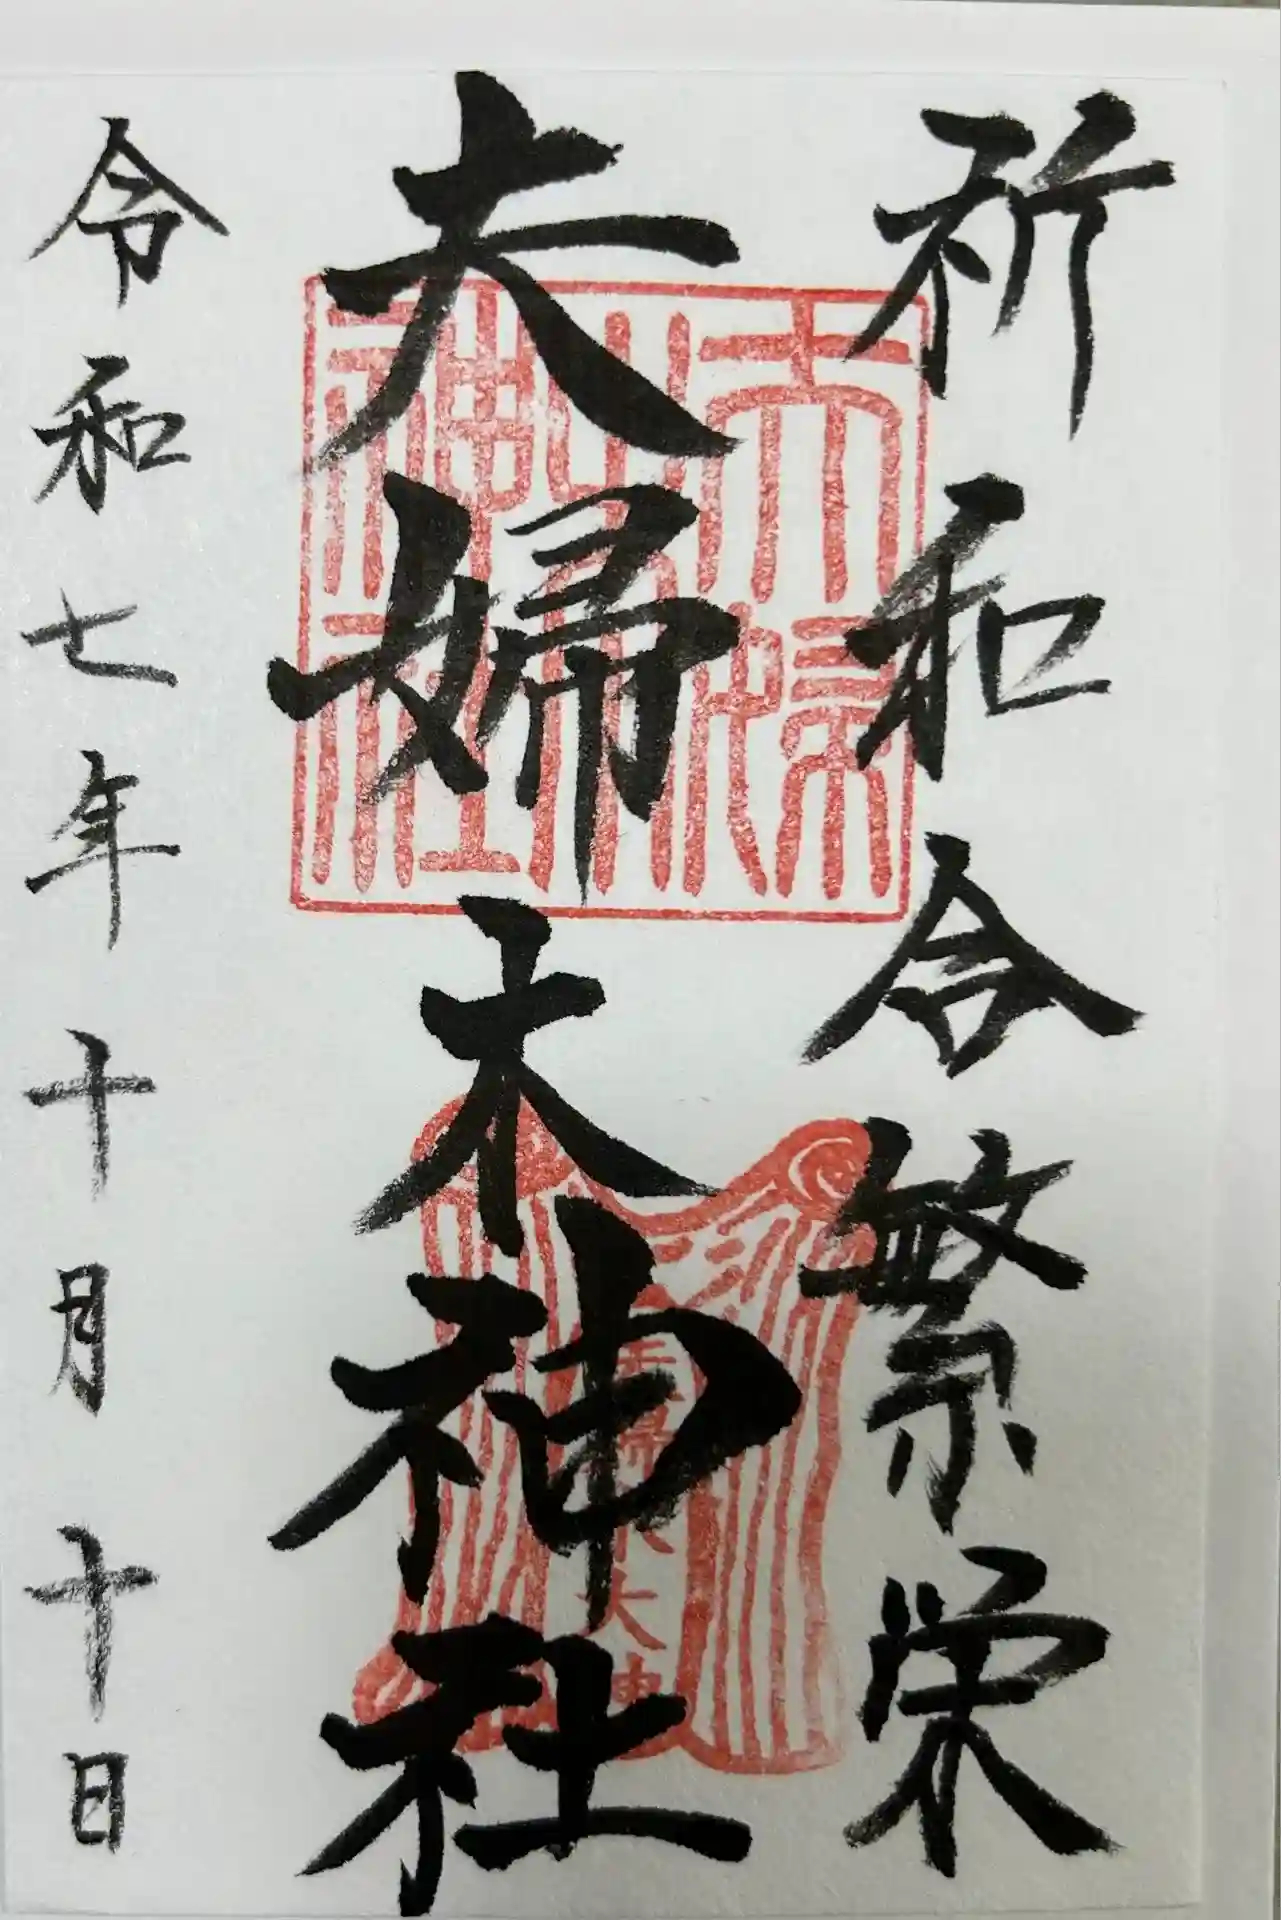 祈和合繁栄
夫婦木神社
夫婦木大神
令和七年十月十日